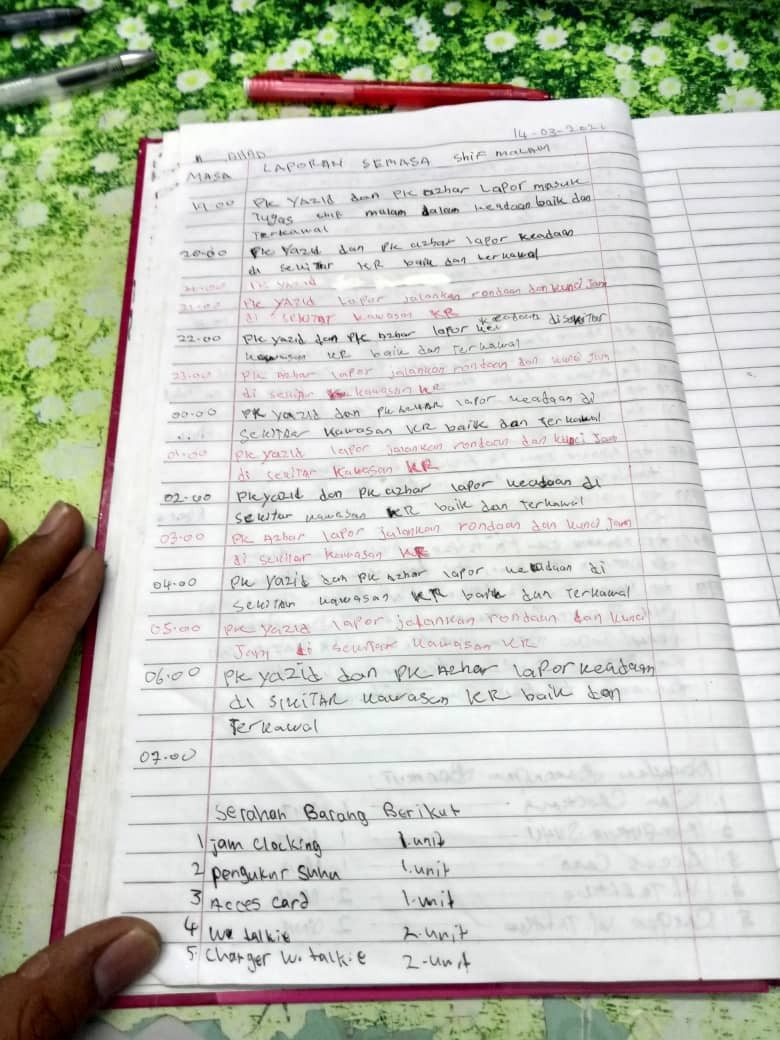 14-03-202
AHAD
MASA LAPORAN SEMASA Shif MALAM
PK YAZID dan PK Azhar Lapor masuk
Tugas shif malam dalam keadaan baik dan
Terkawal
20.00 PK Yazid dan PK azhar lapor keadaan
di sekitar KR baik dan terkawal
21.00 PK YAZID
21.00 PK YAZID Lapor jalankan rondaan dan kunci Jam
di sekitar kawasan KR
22.00 PK yazid dan PK Azhar lapor keadaan disekitar
kawasan KR baik dan Terkawal
23.00 PK Azhar lapor jalankan rondaan dan kunci Jam
di sekitar kawasan KR
00.00 PK yazid dan PK azhar lapor keadaan di
sekitar kawasan KR baik dan Terkawal
01.00 PK yazid lapor jalankan rondaan dan kunci Jam
di sekitar Kawasan KR
02.00 PK yazid dan PK azhar lapor keadaan di
sekitar kawasan KR baik dan Terkawal
03.00 PK Azhar lapor jalankan rondaan dan kunci Jam
di sekitar kawasan KR
04.00 PK yazid dan PK Azhar lapor keadaan di
sekitar kawasan KR baik dan Terkawal
05.00 PK yazid lapor jalankan rondaan dan kunci
Jam di sekitar kawasan KR
06.00 PK yazid dan PK Azhar lapor keadaan
di SIKITAR kawasan KR baik dan
Terkawal
07.00
Serahan Barang Berikut
1 jam Clocking 1.unit
2 pengukur Suhu 1.unit
3 Acces card 1.unit
4 talkie 2.unit
5. Charger w. talkie 2-unit